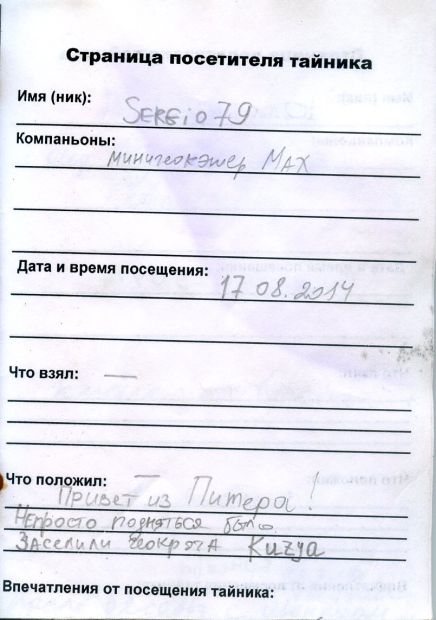 Страница посетителя тайника
Имя (ник): SERGio79
Компаньоны:
минигеокэшер MAX
Дата и время посещения:
17 08.2014
Что взял: —
Что положил: —
Привет из Питера!
Непросто подняться было
Заселили геокрота Kuzya
Впечатления от посещения тайника: